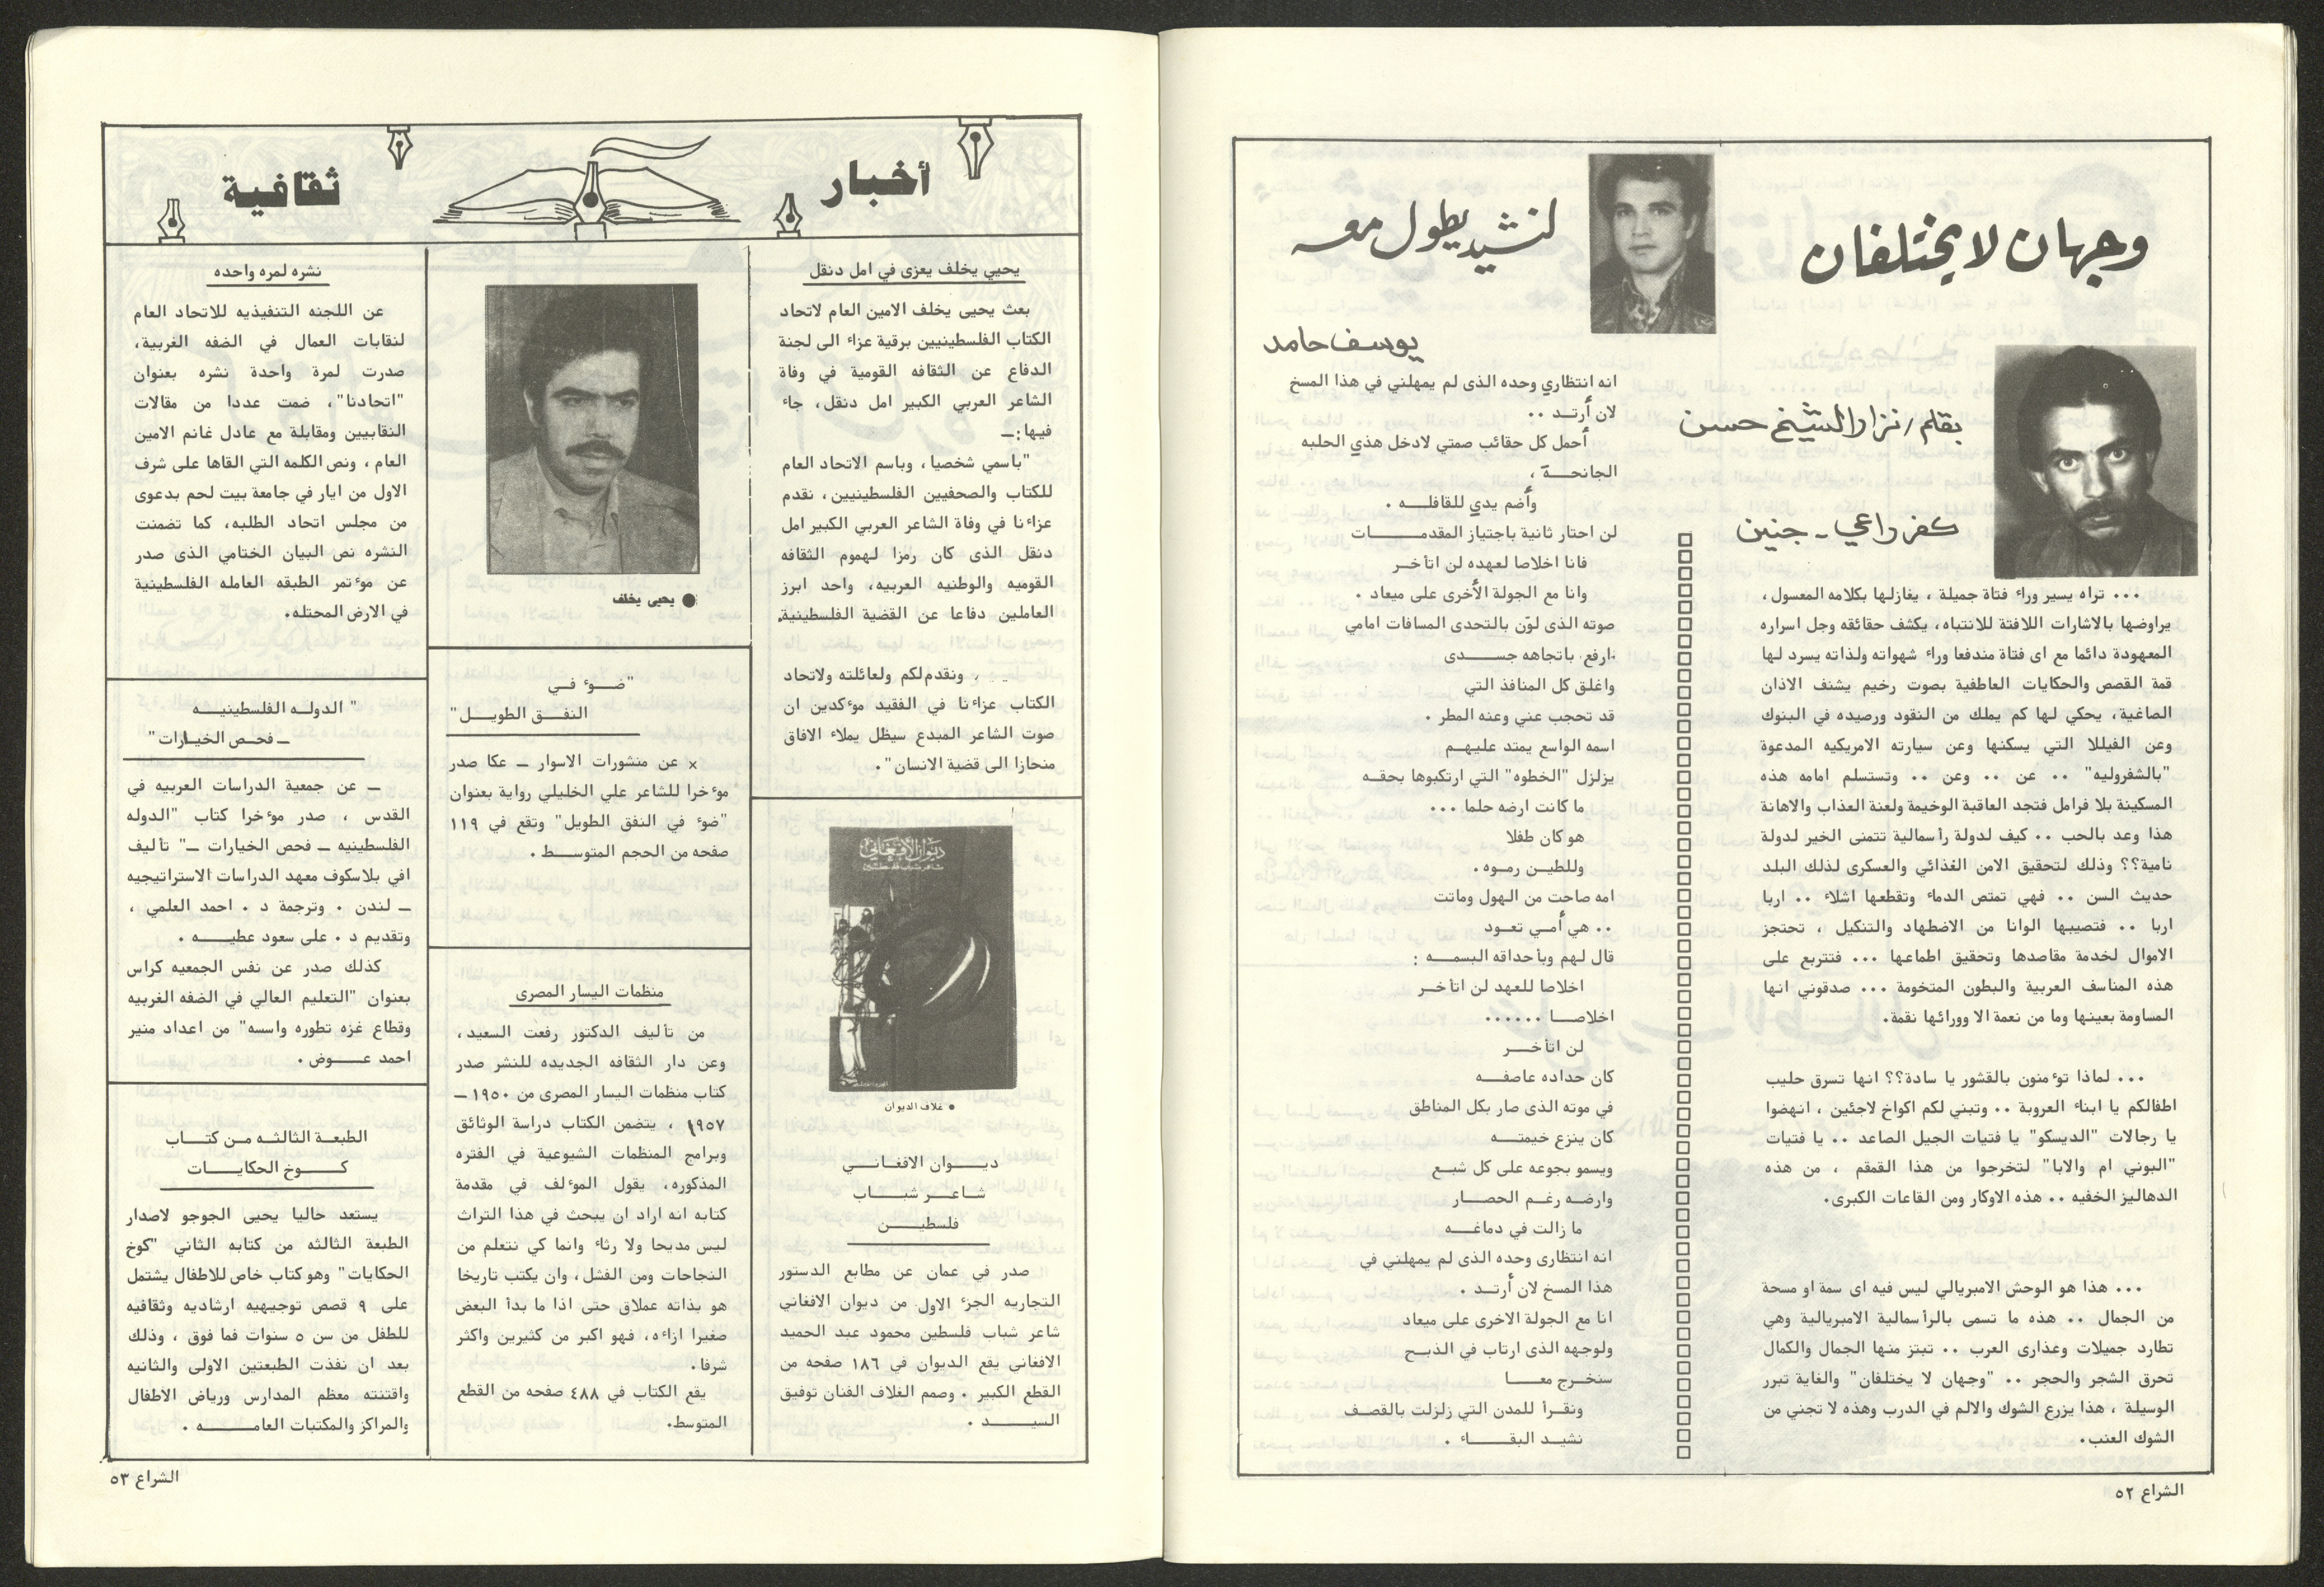 وجهان لا يختلفان
بقلم / نزار الشيخ حسن
كفر راعي - جنين
... تراه يسير وراء فتاة جميلة ، يغازلها بكلامه المعسول ،
يراوضها بالاشارات اللافتة للانتباه ، يكشف حقائقه وجل اسراره
المعهودة دائما مع اى فتاة مندفعا وراء شهواته ولذاته يسرد لها
قمة القصص والحكايات العاطفية بصوت رخيم يشنف الاذان
الصاغية، يحكي لها كم يملك من النقود ورصيده في البنوك
وعن الفيللا التي يسكنها وعن سيارته الامريكيه المدعوة
"بالشفروليه" .. عن .. وعن .. وتستسلم امامه هذه
المسكينة بلا فرامل فتجد العاقبة الوخيمة ولعنة العذاب والاهانة
هذا وعد بالحب .. كيف لدولة رأسمالية تتمنى الخير لدولة
نامية؟؟ وذلك لتحقيق الامن الغذائي والعسكرى لذلك البلد
حديث السن .. فهي تمتص الدماء وتقطعها اشلاء .. اربا
اربا .. فتصيبها الوانا من الاضطهاد والتنكيل ، تحتجز
الاموال لخدمة مقاصدها وتحقيق اطماعها ... فتتربع على
هذه المناسف العربية والبطون المتخومة ... صدقوني انها
المساومة بعينها وما من نعمة الا وورائها نقمة.
... لماذا تؤمنون بالقشور يا سادة؟؟ انها تسرق حليب
اطفالكم يا ابناء العروبة .. وتبني لكم اكواخ لاجئين ، انهضوا
يا رجالات "الديسكو" يا فتيات الجيل الصاعد .. يا فتيات
"البوني ام والابا" لتخرجوا من هذا القمقم ، من هذه
الدهاليز الخفيه .. هذه الاوكار ومن القاعات الكبرى.
... هذا هو الوحش الامبريالي ليس فيه اى سمة او مسحة
من الجمال .. هذه ما تسمى بالرأسمالية الامبريالية وهي
تطارد جميلات وعذارى العرب .. تبتز منها الجمال والكمال
تحرق الشجر والحجر .. "وجهان لا يختلفان" والغاية تبرر
الوسيلة ، هذا يزرع الشوك والالم في الدرب وهذه لا تجني من
الشوك العنب.
لنشيد يطول معه
يوسف حامد
انه انتظاري وحده الذى لم يمهلني في هذا المسخ
لان أرتــد ..
أحمل كل حقائب صمتي لادخل هذي الحلبه
الجانحــة ،
وأضم يدي للقافلــه .
لن احتار ثانية باجتياز المقدمــــات
فانا اخلاصا لعهده لن اتأخــر
وانا مع الجولة الأخرى على ميعاد .
صوته الذى لوّن بالتحدى المسافات امامي
ارفع باتجاهه جســدى
واغلق كل المنافذ التي
قد تحجب عني وعنه المطر .
اسمه الواسع يمتد عليهــم
يزلزل "الخطوه" التي ارتكبوها بحقــه
ما كانت ارضه حلما ...
هو كان طفلا
وللطيــن رموه .
امه صاحت من الهول وماتت
.. هي أمــي تعــود
قال لهم وبأحداقه البسمــه :
اخلاصا للعهد لن اتأخــر
اخلاصــا ......
لن اتأخــر
كان حداده عاصفــه
في موته الذى صار بكل المناطق
كان ينزع خيمتــه
ويسمو بجوعه على كل شبــع
وارضــه رغــم الحصــار
ما زالت في دماغــه
انه انتظارى وحده الذى لم يمهلني في
هذا المسخ لان أرتــد .
انا مع الجولة الاخرى على ميعاد
ولوجهه الذى ارتاب في الذبــح
سنخــرج معــا
ونقــرأ للمدن التي زلزلت بالقصــف
نشيــد البقــاء .
الشراع ٥٢
أخبار
ثقافية
يحيي يخلف يعزى في امل دنقل
بعث يحيى يخلف الامين العام لاتحاد
الكتاب الفلسطينيين برقية عزاء الى لجنة
الدفاع عن الثقافه القومية في وفاة
الشاعر العربي الكبير امل دنقل، جاء
فيها :ــ
"باسمي شخصيا ، وباسم الاتحاد العام
للكتاب والصحفيين الفلسطينيين، نقدم
عزاءنا في وفاة الشاعر العربي الكبير امل
دنقل الذى كان رمزا لهموم الثقافه
القوميه والوطنيه العربيه، واحد ابرز
العاملين دفاعا عن القضية الفلسطينية.
ونقدم لكم ولعائلته ولاتحاد
الكتاب عزاءنا في الفقيد موءكدين ان
صوت الشاعر المبدع سيظل يملاء الافاق
منحازا الى قضية الانسان".
ديوان الافغاني
شاعر شباب فلسطين
• غلاف الديوان
ديــوان الافغانــي
شاعــر شبــاب
فلسطيــن
صدر في عمان عن مطابع الدستور
التجاريه الجزء الاول من ديوان الافغاني
شاعر شباب فلسطين محمود عبد الحميد
الافغاني يقع الديوان في ١٨٦ صفحه من
القطع الكبير . وصمم الغلاف الفنان توفيق
السيــــد .
● يحيى يخلف
"ضــوء فــي
النفــق الطويــل"
× عن منشورات الاسوار ــ عكا صدر
موءخرا للشاعر علي الخليلي رواية بعنوان
"ضوء في النفق الطويل" وتقع في ١١٩
صفحه من الحجم المتوســط .
منظمات اليسار المصرى
من تأليف الدكتور رفعت السعيد،
وعن دار الثقافه الجديده للنشر صدر
كتاب منظمات اليسار المصرى من ١٩٥٠ ــ
١٩٥٧ ، يتضمن الكتاب دراسة الوثائق
وبرامج المنظمات الشيوعية في الفتره
المذكوره، يقول الموءلف في مقدمة
كتابه انه اراد ان يبحث في هذا التراث
ليس مديحا ولا رثاء وانما كي نتعلم من
النجاحات ومن الفشل، وان يكتب تاريخا
هو بذاته عملاق حتى اذا ما بدأ البعض
صغيرا ازاءه، فهو اكبر من كثيرين واكثر
شرفا.
يقع الكتاب في ٤٨٨ صفحه من القطع
المتوسط.
نشره لمره واحده
عن اللجنه التنفيذيه للاتحاد العام
لنقابات العمال في الضفه الغربية،
صدرت لمرة واحدة نشره بعنوان
"اتحادنا"، ضمت عددا من مقالات
النقابيين ومقابلة مع عادل غانم الامين
العام ، ونص الكلمه التي القاها على شرف
الاول من ايار في جامعة بيت لحم بدعوى
من مجلس اتحاد الطلبه، كما تضمنت
النشره نص البيان الختامي الذى صدر
عن موءتمر الطبقه العامله الفلسطينية
في الارض المحتله.
" الدولــه الفلسطينيــه
ــ فحــص الخيارات"
ــ عن جمعية الدراسات العربيه في
القدس ، صدر موءخرا كتاب "الدوله
الفلسطينيه ــ فحص الخيارات ــ" تأليف
افي بلاسكوف معهد الدراسات الاستراتيجيه
ــ لندن . وترجمة د . احمد العلمي ،
وتقديم د . على سعود عطيــه .
كذلك صدر عن نفس الجمعيه كراس
بعنوان "التعليم العالي في الضفه الغربيه
وقطاع غزه تطوره واسسه" من اعداد منير
احمد عــوض .
الطبعــة الثالثــه مــن كتــاب
كــوخ الحكايــات
يستعد حاليا يحيى الجوجو لاصدار
الطبعة الثالثه من كتابه الثاني "كوخ
الحكايات" وهو كتاب خاص للاطفال يشتمل
على ٩ قصص توجيهيه ارشاديه وثقافيه
للطفل من سن ٥ سنوات فما فوق ، وذلك
بعد ان نفذت الطبعتين الاولى والثانيه
واقتنته معظم المدارس ورياض الاطفال
والمراكز والمكتبات العامــــه .
الشراع ٥٣